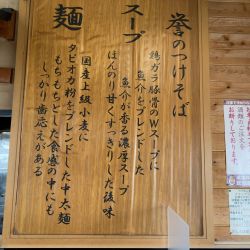 誉のつけそば
スープ
鶏ガラ豚骨のWスープに
魚介をブレンドした
魚介が香る濃厚スープ
ほんのり甘くすっきりした後味
麺
国産上級小麦に
タピオカ粉をブレンドした中太麺
もちもちとした食感の中にも
しっかり歯応えがある